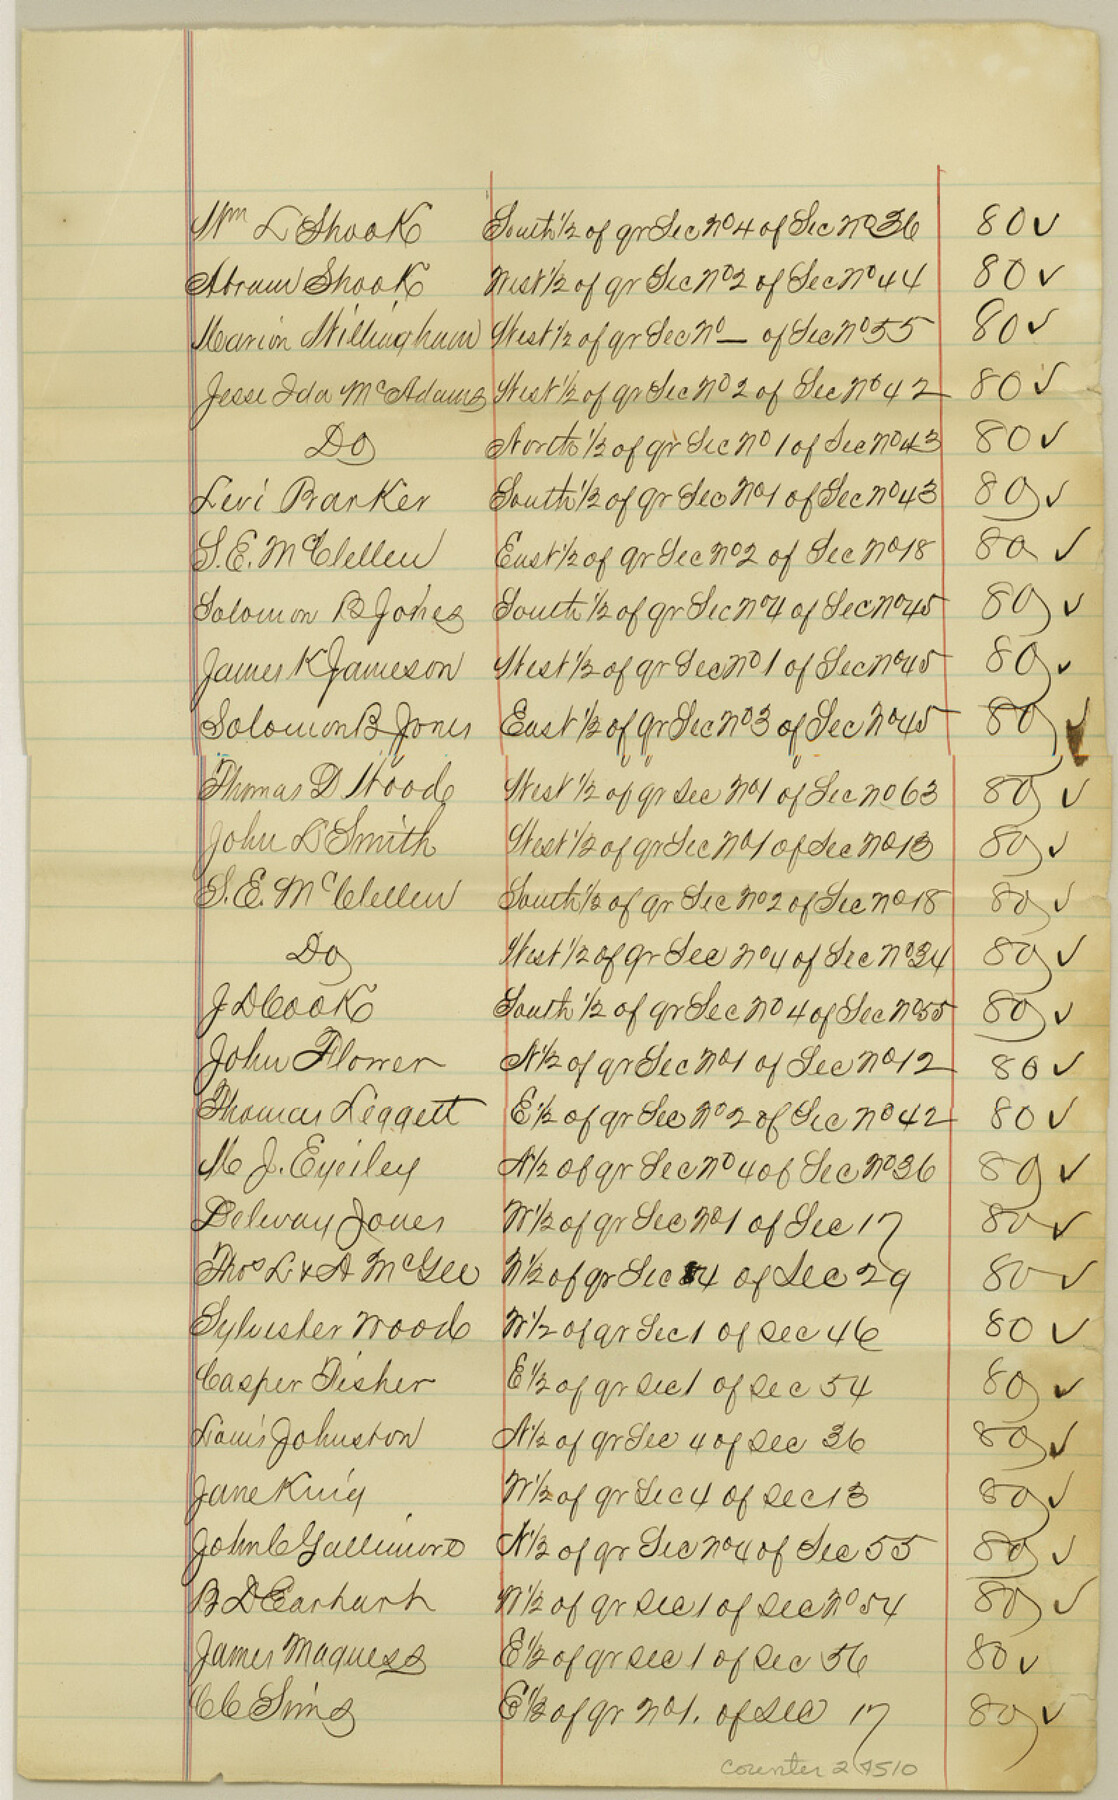 Wm L Shook South 1/2 of qr Sec No 4 of Sec No 36 80 ✓
Abram Shook West 1/2 of qr Sec No 2 of Sec No 44 80 ✓
Marion Willingham West 1/2 of qr Sec No — of Sec No 55 80 ✓
Jesse Ida McAdams West 1/2 of qr Sec No 2 of Sec No 42 80 ✓
Do North 1/2 of qr Sec No 1 of Sec No 43 80 ✓
Levi Barker South 1/2 of qr Sec No 1 of Sec No 43 80 ✓
S. E. McClellen East 1/2 of qr Sec No 2 of Sec No 18 80 ✓
Solomon B Jones South 1/2 of qr Sec No 4 of Sec No 45 80 ✓
James K Jameson West 1/2 of qr Sec No 1 of Sec No 45 80 ✓
Solomon B Jones East 1/2 of qr Sec No 3 of Sec No 45 80 ✓
Thomas D Wood West 1/2 of qr Sec No 1 of Sec no 63 80 ✓
John L Smith West 1/2 of qr Sec No 1 of Sec No 13 80 ✓
S. E. McClellen South 1/2 of qr Sec No 2 of Sec No 18 80 ✓
Do West 1/2 of qr Sec No 4 of Sec No 34 80 ✓
J D Cook South 1/2 of qr Sec No 4 of Sec No 55 80 ✓
John Flower N 1/2 of qr Sec No 1 of Sec No 12 80 ✓
Thomas Leggett E 1/2 of qr Sec No 2 of Sec No 42 80 ✓
M J. N 1/2 of qr Sec No 4 of Sec No 36 80 ✓
Jones W 1/2 of qr Sec No 1 of Sec 17 80 ✓
Thos L & A McGee N 1/2 of qr Sec 4 of Sec 29 80 ✓
Sylvester Wood W 1/2 of qr Sec 1 of Sec 46 80 ✓
Casper Fisher E 1/2 of qr Sec 1 of Sec 54 80 ✓
Louis Johnston N 1/2 of qr Sec 4 of Sec 36 80 ✓
Jane King W 1/2 of qr Sec 4 of Sec 13 80 ✓
John C Gallimore N 1/2 of qr Sec No 4 of Sec 55 80 ✓
B D Earhart W 1/2 of qr Sec 1 of Sec No 54 80 ✓
James Maguess E 1/2 of qr Sec 1 of Sec 56 80 ✓
C C Sims E 1/2 of qr No 1. of Sec 17 80 ✓
Counter 24510